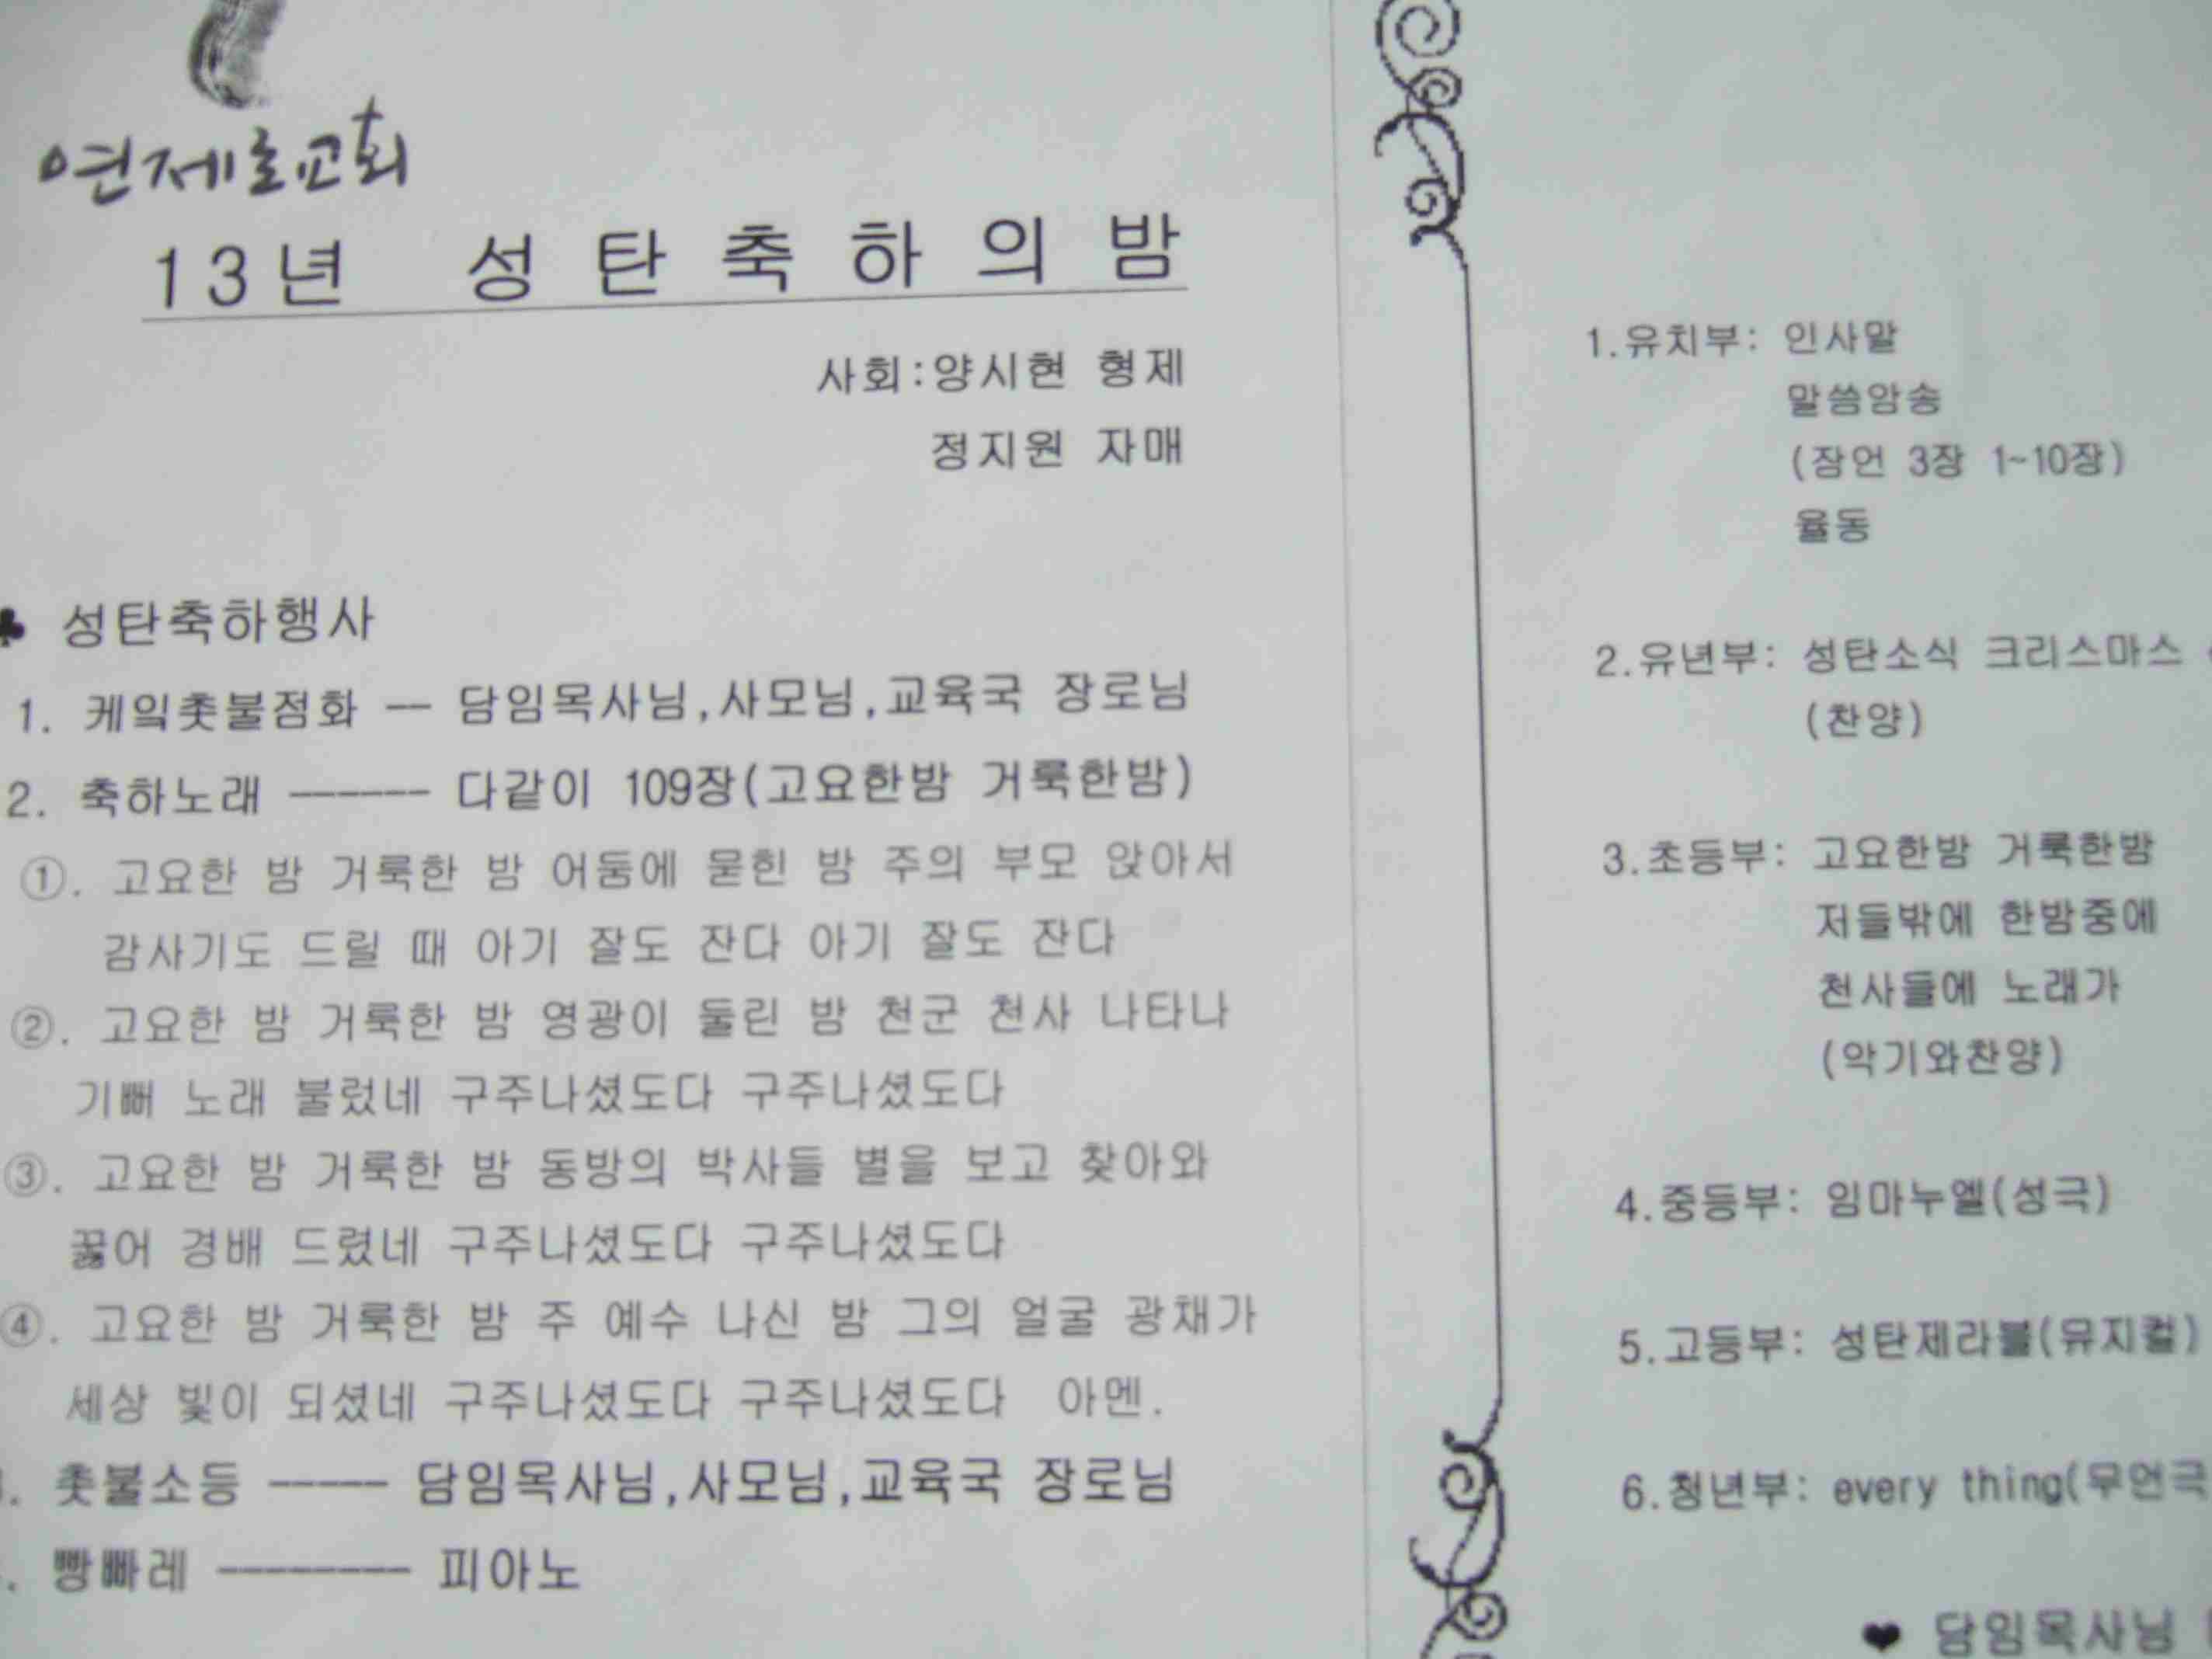 연제로교회
13년 성탄축하의밤
사회:양시현 형제
정지원 자매
♣ 성탄축하행사
1. 케익촛불점화 -- 담임목사님,사모님,교육국 장로님
2. 축하노래 ------ 다같이 109장(고요한밤 거룩한밤)
①. 고요한 밤 거룩한 밤 어둠에 묻힌 밤 주의 부모 앉아서
감사기도 드릴 때 아기 잘도 잔다 아기 잘도 잔다
②. 고요한 밤 거룩한 밤 영광이 둘린 밤 천군 천사 나타나
기뻐 노래 불렀네 구주나셨도다 구주나셨도다
③. 고요한 밤 거룩한 밤 동방의 박사들 별을 보고 찾아와
꿇어 경배 드렸네 구주나셨도다 구주나셨도다
④. 고요한 밤 거룩한 밤 주 예수 나신 밤 그의 얼굴 광채가
세상 빛이 되셨네 구주나셨도다 구주나셨도다 아멘.
. 촛불소등 ----- 담임목사님,사모님,교육국 장로님
. 빵빠레 -------- 피아노
1.유치부: 인사말
말씀암송
(잠언 3장 1~10장)
율동
2.유년부: 성탄소식 크리스마스
(찬양)
3.초등부: 고요한밤 거룩한밤
저들밖에 한밤중에
천사들에 노래가
(악기와찬양)
4.중등부: 임마누엘(성극)
5.고등부: 성탄제라블(뮤지컬)
6.청년부: every thing(무언극
♥ 담임목사님